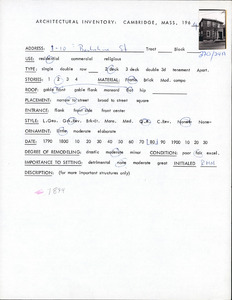 ARCHITECTURAL INVENTORY: CAMBRIDGE, MASS, 196
ADDRESS: Tract Block
USE: residential commercial religious
TYPE: single double row 2 deck 3 deck double 3d tenement Apart.
STORIES: 1 2 3 4 MATERIAL: Frame Brick Mod. comps
ROOF: gable front gable flank mansard flat hip
PLACEMENT: narrow street broad to street square
ENTRANCE: flank front side front center
STYLE: L.Geo. Gk.rev. Brkttd. Mans. Mod. Q.A. C.Rev. None
ORNAMENT: little moderate elaborate
DATE: 1790 1800 10 20 30 40 50 60 70 80 90 1900 10 20 30
DEGREE OF REMODELING: drastic moderate minor CONDITION: poor fair excel.
IMPORTANCE TO SETTING: detrimental none moderate great INITIALED
DESCRIPTION: (for more important structures only)